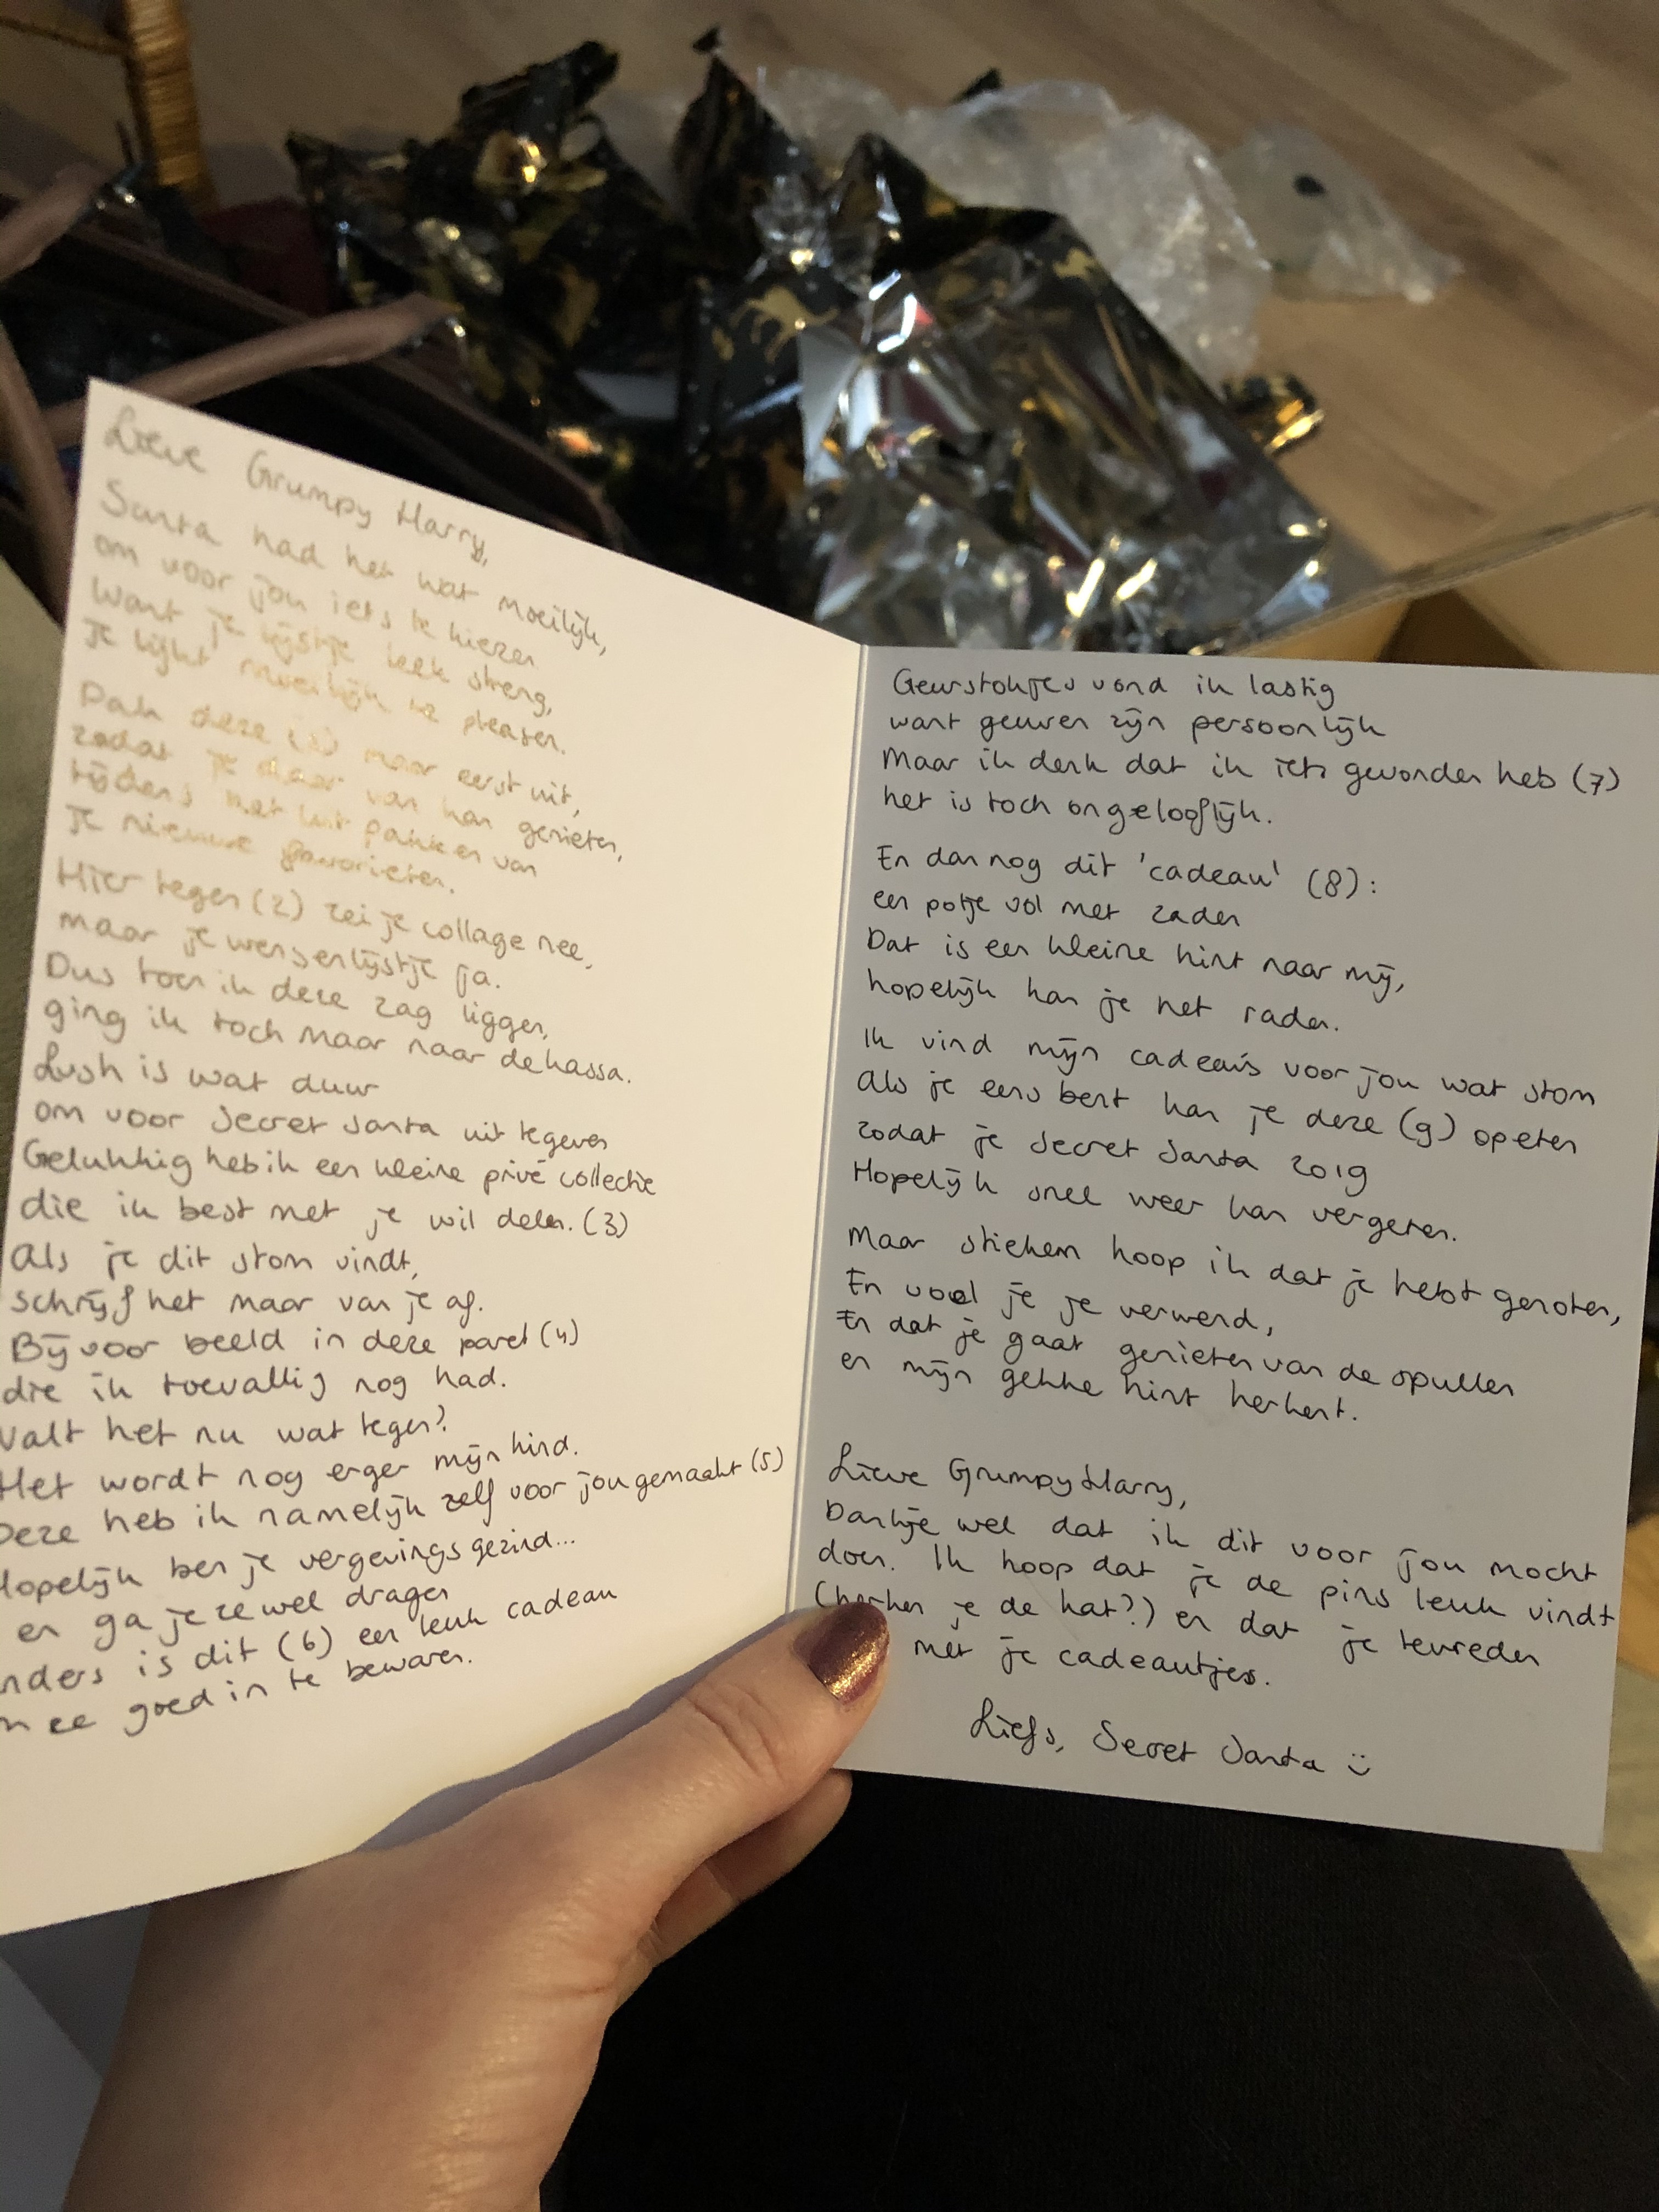 Lieve Grumpy Harry,
Santa had het wat moeilijk,
om voor jou iets te kiezen
Want je lijstje leek streng,
Je lijkt moeilijk te pleasen.
Pak deze (1) maar eerst uit,
zodat je daar van kan genieten,
tijdens het uit pakken van
je nieuwe favorieten.
Hier tegen (2) zei je collage nee,
maar je wensenlijstje ja.
Dus toen ik deze zag liggen,
ging ik toch maar naar de kassa.
Lush is wat duur
om voor Secret Santa uit te geven
Gelukkig heb ik een kleine privé collectie
die ik best met je wil delen. (3)
Als je dit stom vindt,
schrijf het maar van je af.
Bijvoor beeld in deze parel (4)
die ik toevallig nog had.
Valt het nu wat tegen?
Het wordt nog erger mijn kind.
Deze heb ik namelijk zelf voor jou gemaakt (5)
Hopelijk ben je vergevings gezind...
en ga je ze wel dragen
nders is dit (6) een leuk cadeau
m ze goed in te bewaren.
Geurstokjes vond ik lastig
want geuren zijn persoonlijk
Maar ik denk dat ik iets gevonden heb (7)
het is toch ongelooflijk.
En dan nog dit 'cadeau' (8):
een potje vol met zaden
Dat is een kleine hint naar mij,
hopelijk kan je het raden.
Ik vind mijn cadeau's voor jou wat stom
Als je eens bent kan je deze (9) opeten
zodat je Secret Santa 2019
Hopelijk snel weer kan vergeten.
Maar stiekem hoop ik dat je hebt genoten,
En voel je je verwend,
En dat je gaat genieten van de spullen
en mijn gekke hint herkent.
Lieve Grumpy Harry,
Dankje wel dat ik dit voor jou mocht
doen. Ik hoop dat je de pins leuk vindt
(herken je de kat?) en dat je tevreden
met je cadeautjes.
Liefs, Secret Santa :)